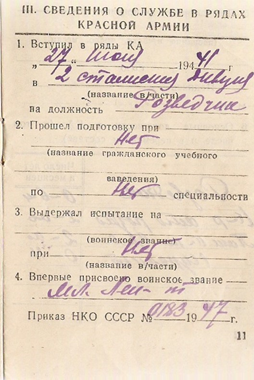 III. СВЕДЕНИЯ О СЛУЖБЕ В РЯДАХ
КРАСНОЙ АРМИИ
1. Вступил в ряды КА
„27“ 1941 г.
в 2
(название в/части)
на должность Розведчик
2. Прошел подготовку при
Нет
(название гражданского учебного
заведения)
по Нет специальности
3. Выдержал испытание на
(воинское звание)
при Нет
(название в/части)
4. Впервые присвоено воинское звание
Мл. Лей-т
Приказ НКО СССР № 0183 1947 г.
11